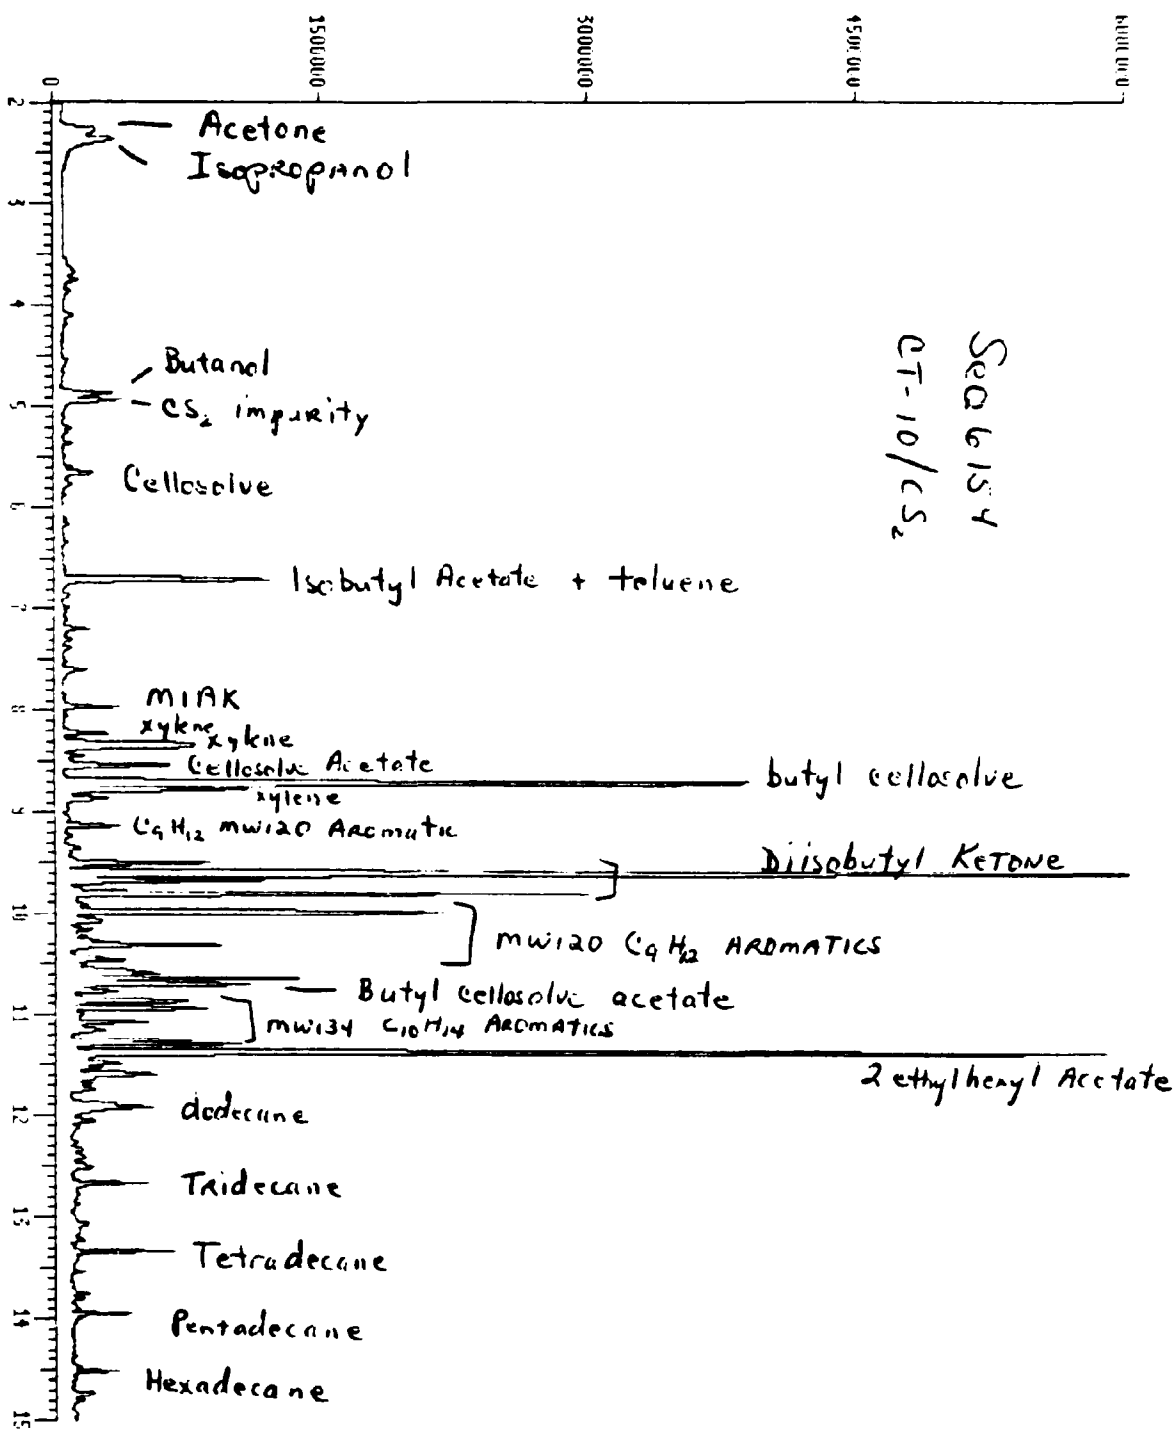 0
1500000
3000000
4500000
6000000
2
Acetone
Isopropanol
3
4
Butanol
5
CS₂ impurity
Seq 6154
CT-10/CS₂
Cellosolve
6
Isobutyl Acetate + toluene
7
MIAK
8
xylene
xylene
Cellosolve Acetate
butyl cellosolve
xylene
9
C₉H₁₂ MW120 Aromatic
Diisobutyl KETONE
10
MW120 C₉H₁₂ AROMATICS
Butyl cellosolve acetate
11
MW134 C₁₀H₁₄ AROMATICS
2 ethylhexyl Acetate
12
dodecane
Tridecane
13
Tetradecane
14
Pentadecane
Hexadecane
15